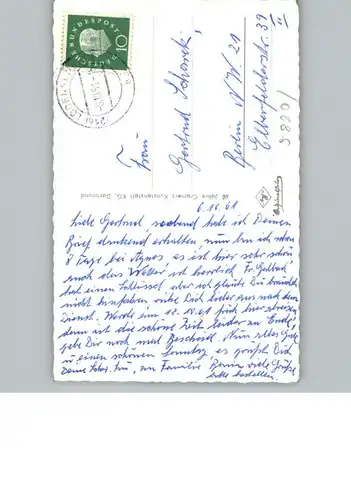 DEUTSCHE BUNDESPOST
10
Frau
Gertrud
Berlin N.W. 21
Elberfelderstr. 39
II
5890/
60 Jahre Cramers Kunstanstalt KG, Dortmund
6.10.61
Liebe Gertrud, habe ich Deinen
Brief dankend erhalten nun bin ich schon
8 Tage bei Agnes es ist hier sehr schön
auch das Wetter ist herrlich Fr.
hat einen Schlüssel aber ich glaube Du brauchst
nicht hinfahren ruhe Dich lieber aus nach dem
Dienst. Werde am 12.10.61 früh hier abreisen
denn ist die schöne Zeit leider zu Ende,
gebe Dir noch mal Bescheid. Nun alles Gute
u. einen schönen Sonntag es grüßt Dich
Deine an Familie viele Grüße
bestellen.